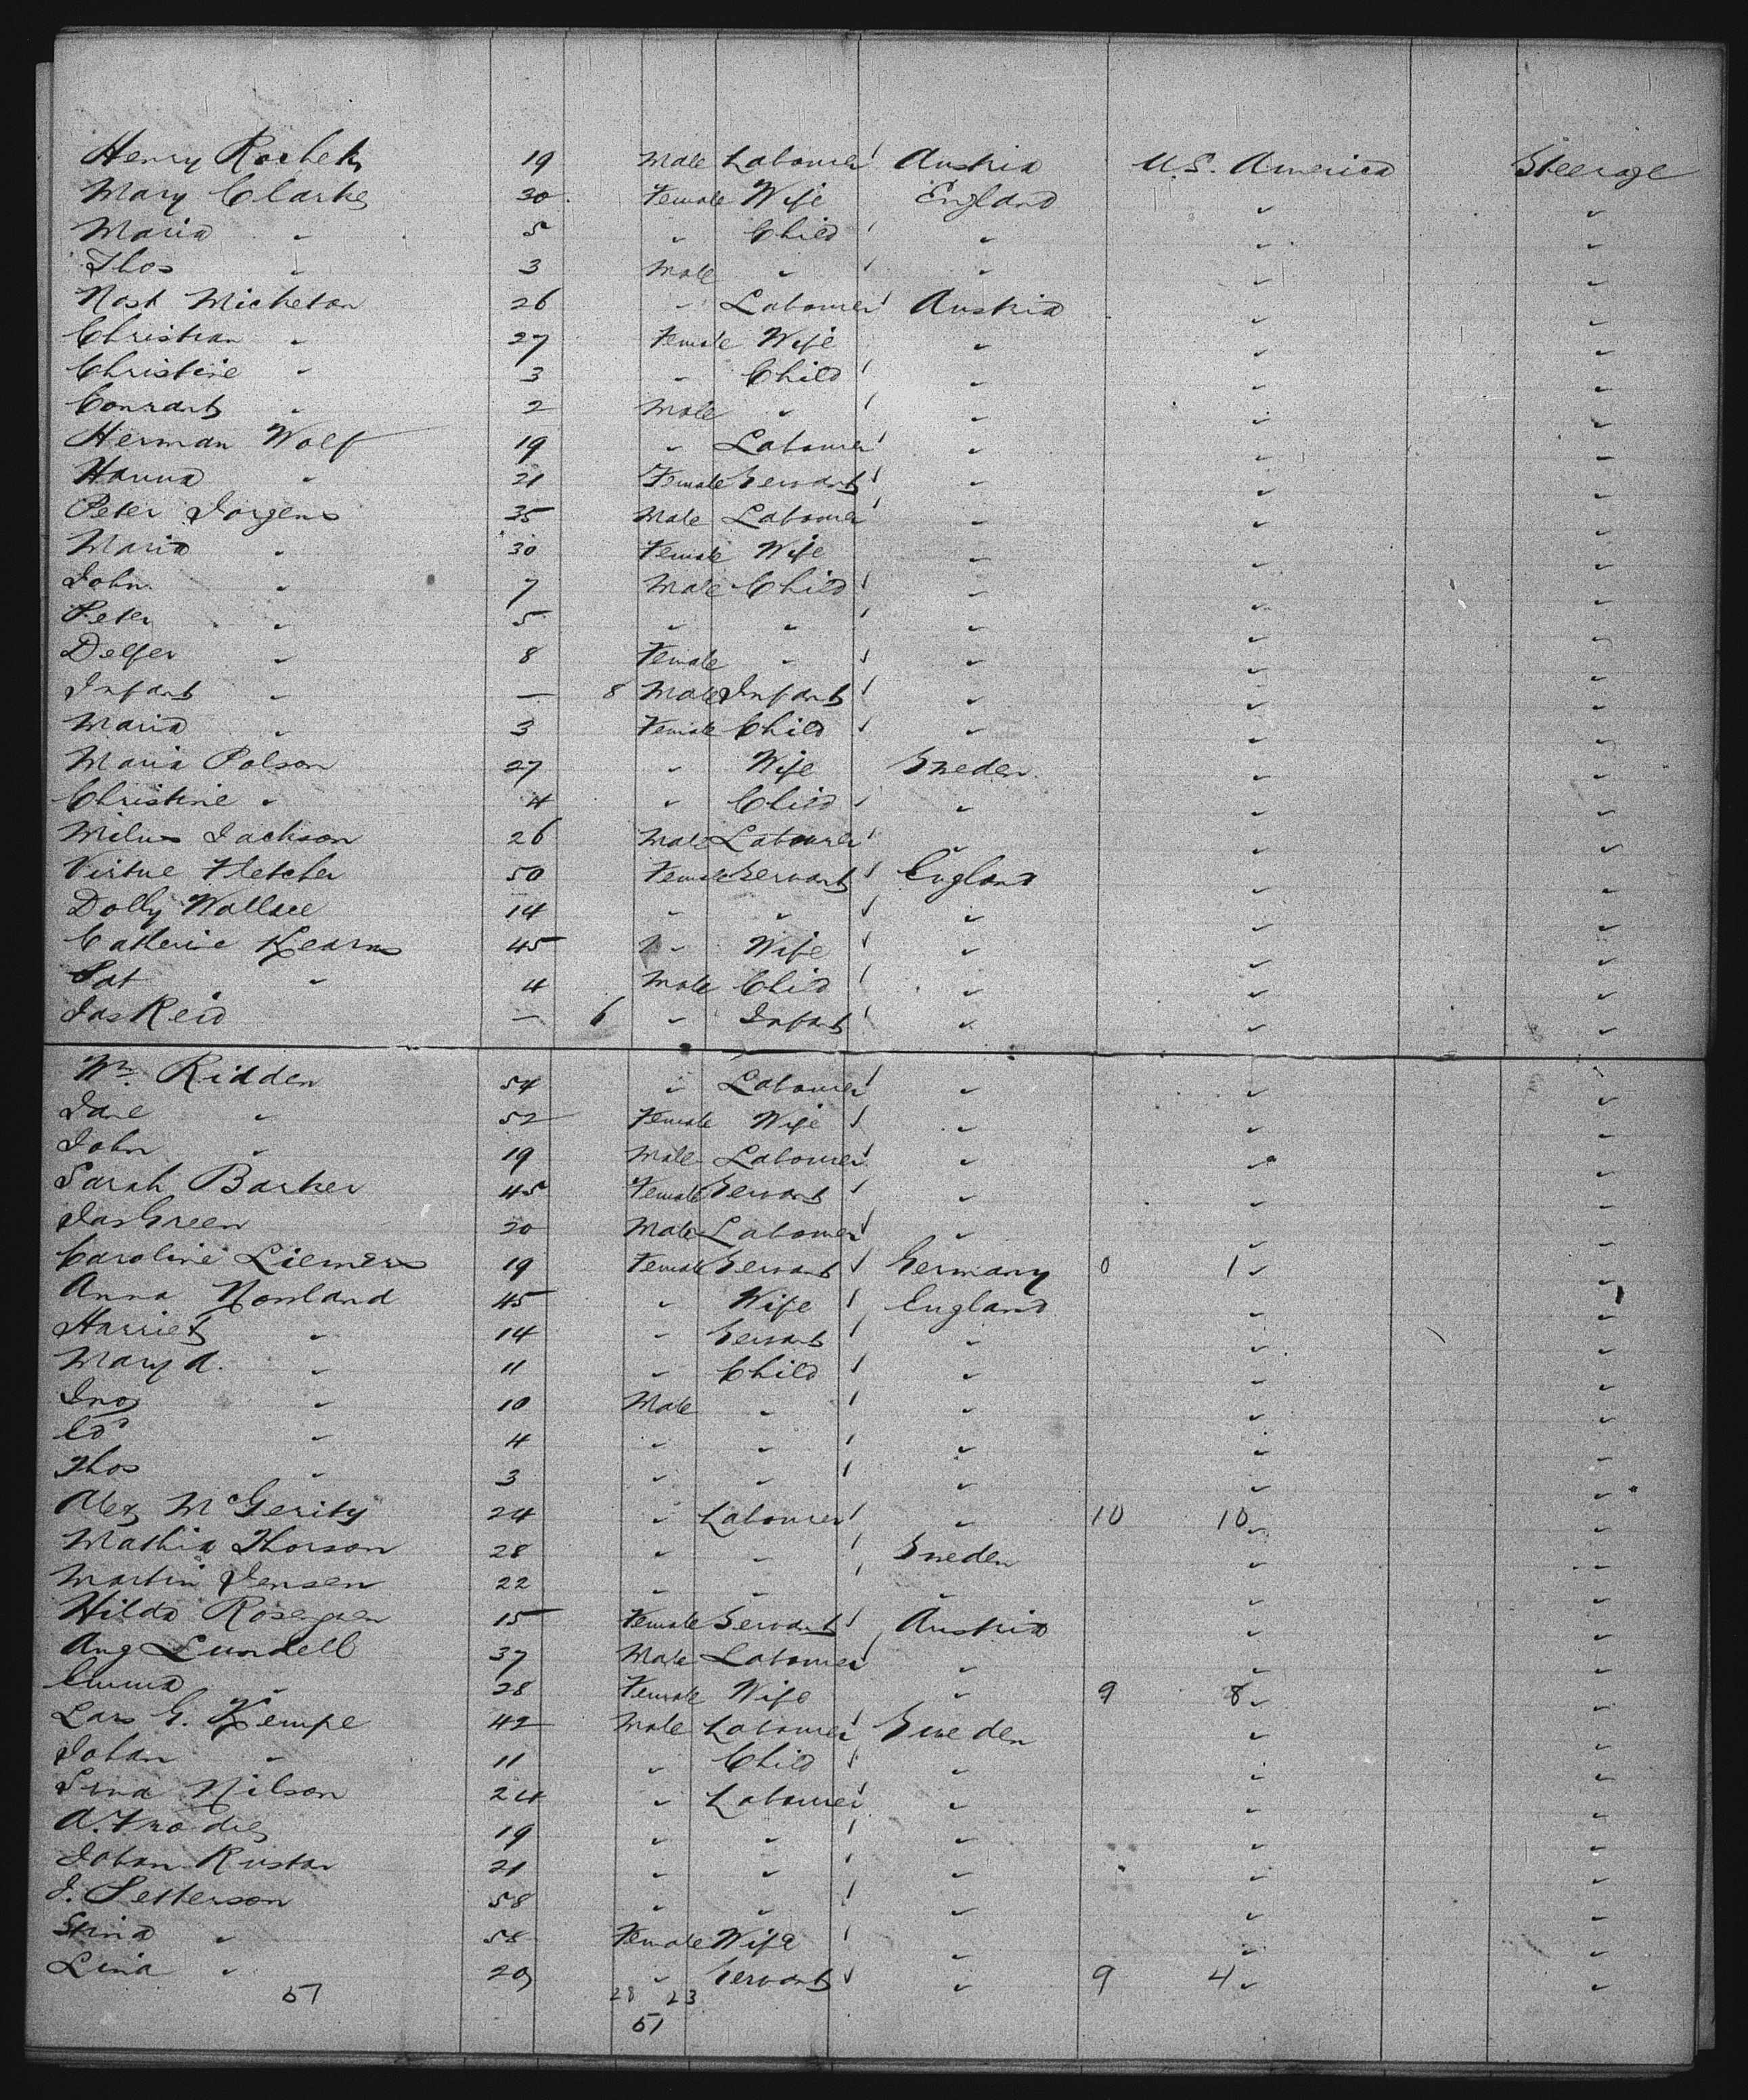 Henry Rochek 19 Male Labourer Austria U.S. America Steerage
Mary Clarke 30 Female Wife England " "
Maria " 5 " Child " " "
Thos " 3 Male " " " "
Nast Micheton 26 " Labourer Austria " "
Christian " 27 Female Wife " " "
Christine " 3 " Child " " "
Conrart " 2 Male " " " "
Herman Wolf 19 " Labourer " " "
Hanna " 21 Female Servant " " "
Peter Jorgens 35 Male Labourer " " "
Maria " 30 Female Wife " " "
John " 7 Male Child " " "
Peter " 5 " " " " "
" 8 Female " " " "
Infant " — 8 Male Infant " " "
Maria " 3 Female Child " " "
Maria Polson 27 " Wife Sweden " "
Christine " 4 " Child " " "
Milus Jackson 26 Male Labourer " " "
Virtue Fletcher 50 Female Servant England " "
Dolly Wallace 14 " " " " "
Catherine Kearns 45 " Wife " " "
Pat " 4 Male Child " " "
Jas Reid — 6 " Infant " " "
Wm. Ridden 54 " Labourer " " "
Jane " 52 Female Wife " " "
John " 19 Male Labourer " " "
Sarah Barker 45 Female Servant " " "
Jas Green 20 Male Labourer " " "
Caroline Liemers 19 Female Servant Germany 0 1 " "
Anna Nowland 45 " Wife England " "
Harriet " 14 " Servant " " "
Mary A. " 11 " Child " " "
Jno " 10 Male " " " "
Ed " 4 " " " " "
Thos " 3 " " " " "
Alex McGerity 24 " Labourer " 10 10 " "
Mathia Thorson 28 " " Sweden " "
Martin Jensen 22 " " " " "
Hilda Rosengren 15 Female Servant Austria " "
Aug Lundell 37 Male Labourer " " "
Emma " 28 Female Wife " 9 8 " "
Lars G. Kempe 42 Male Labourer Sweden " "
Johan " 11 " Child " " "
Nilson 24 " Labourer " " "
A. 19 " " " " "
Johan Rustar 21 " " " " "
J. Petterson 58 " " " " "
Stina " 58 Female Wife " " "
Lina " 20 " Servant " 9 4 " "
51 28 23
51